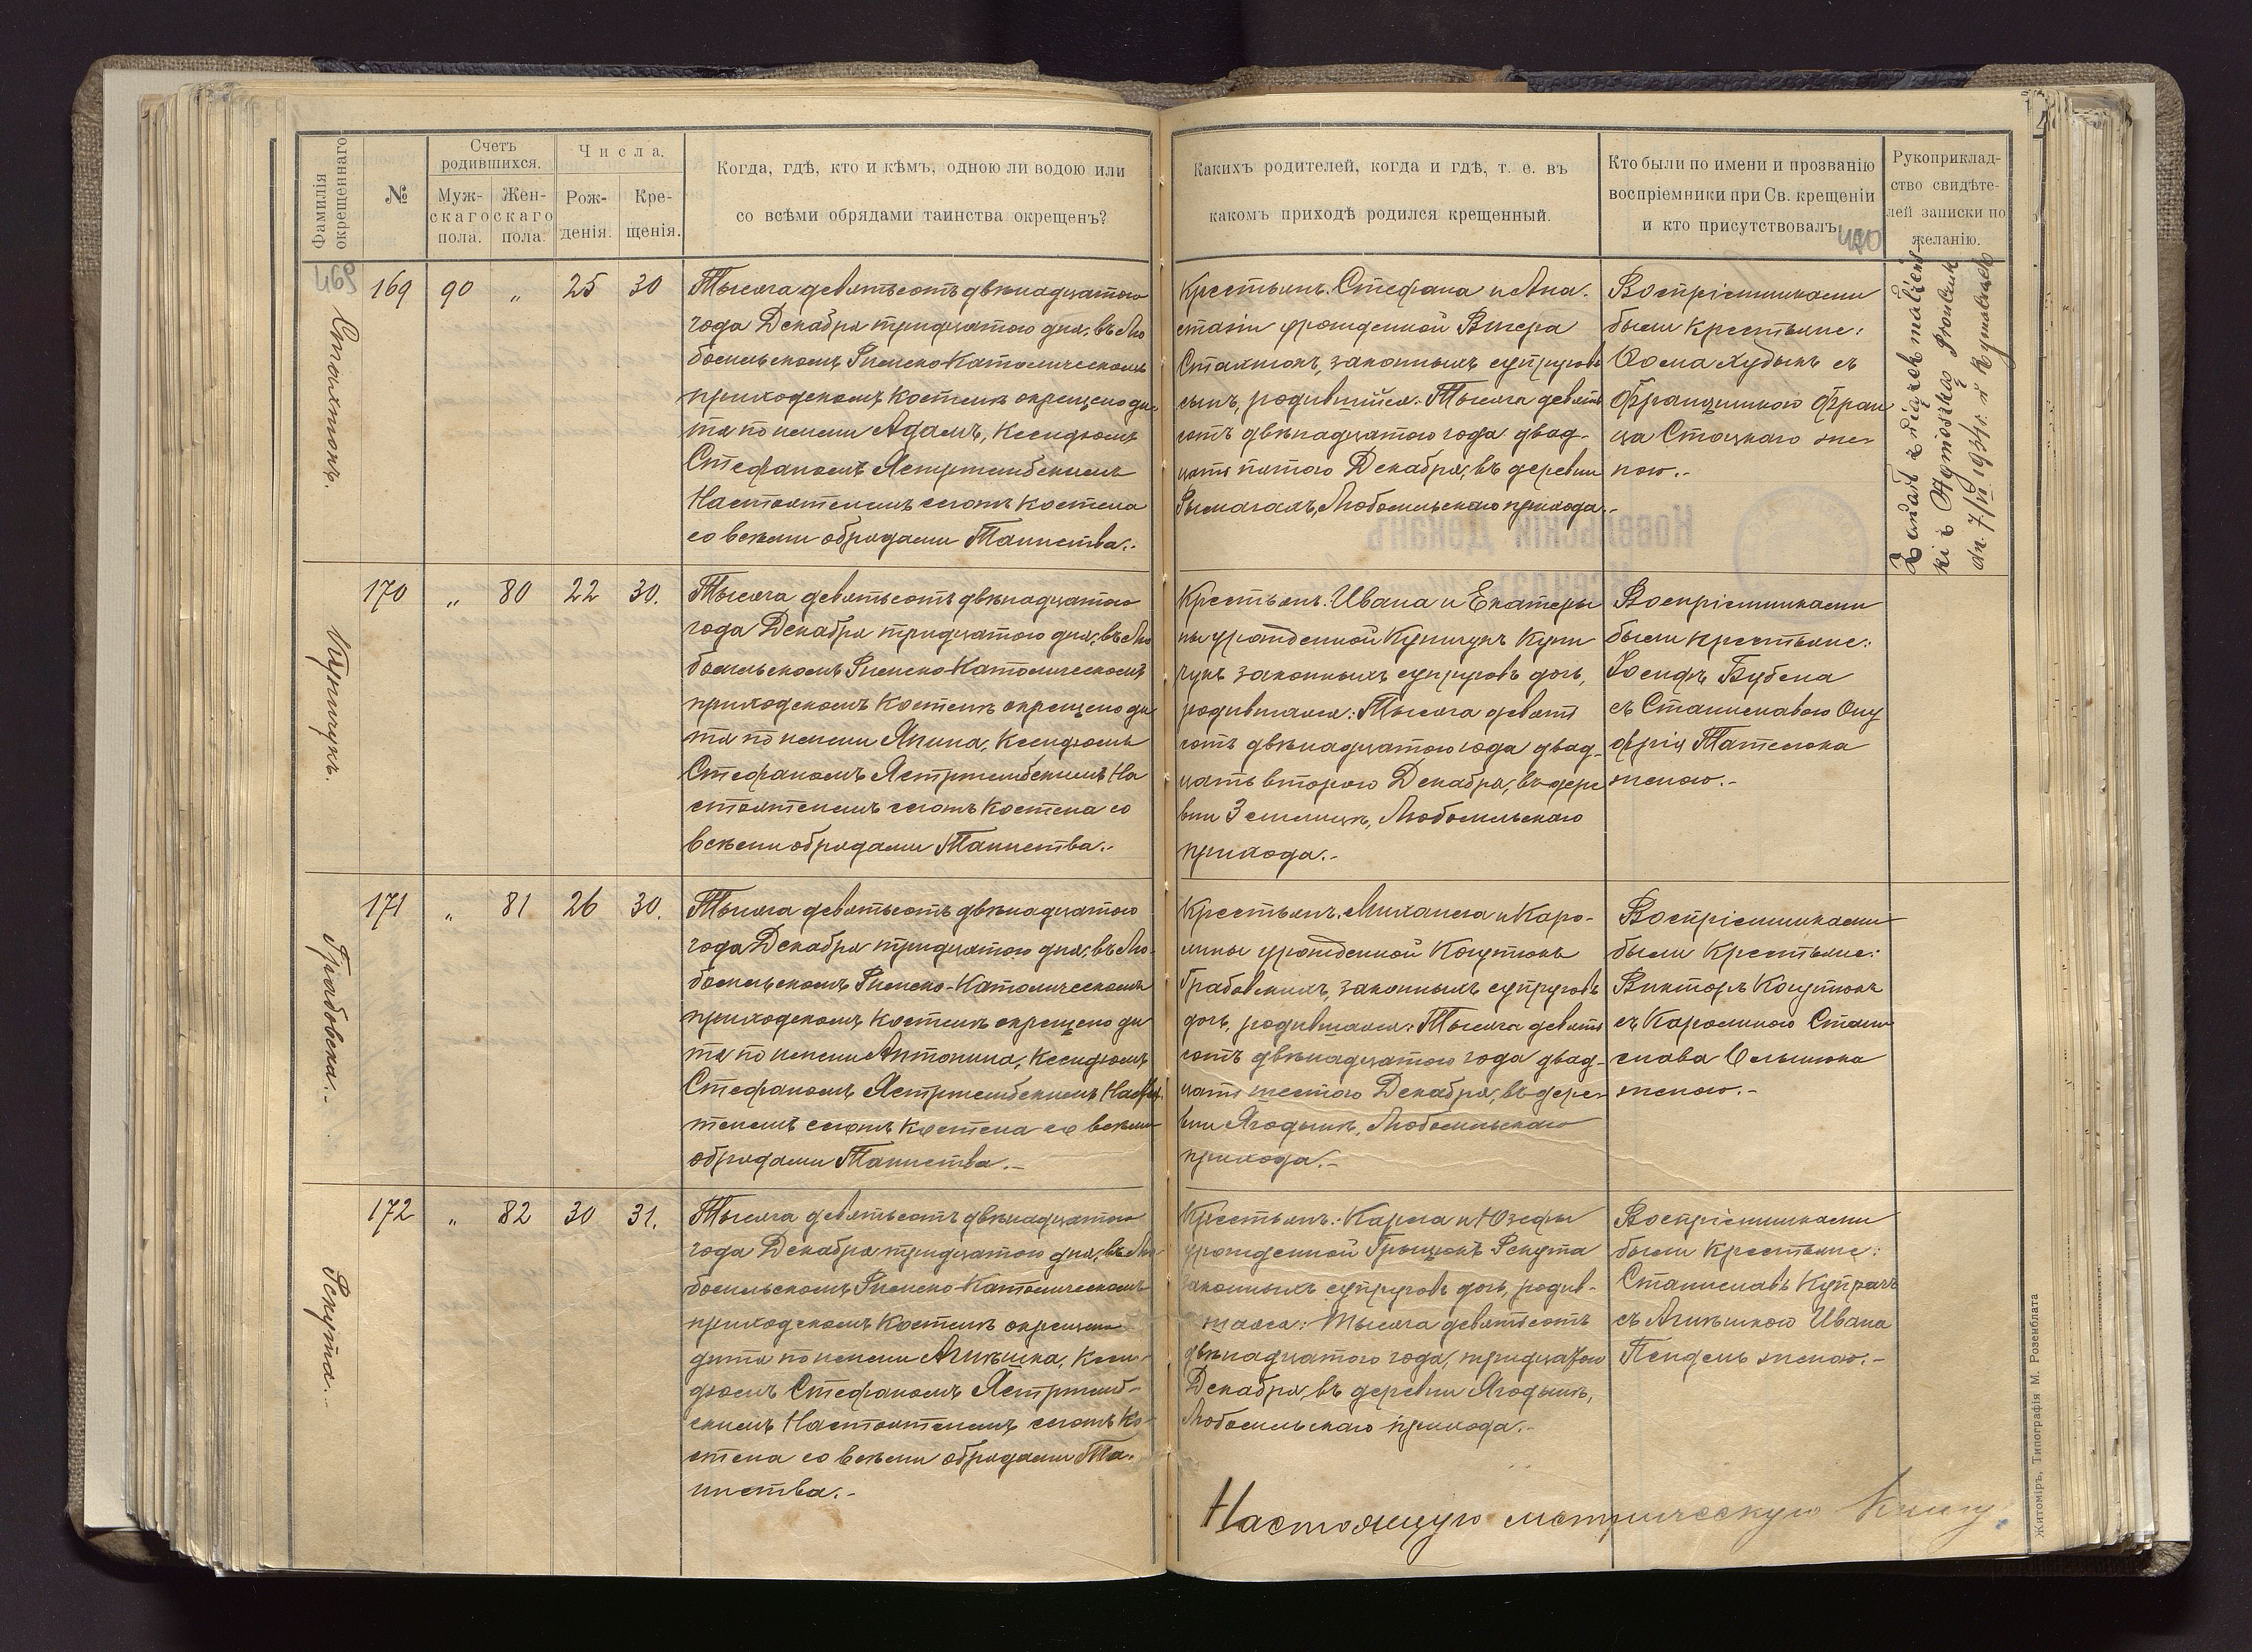 Фамилія окрещеннаго
№
Счетъ родившихся.
Муж-
скаго
пола.
Жен-
скаго
пола.
Числа.
Рож-
денія.
Кре-
щенія.
Когда, гдѣ, кто и кѣмъ, одною ли водою или
со всѣми обрядами таинства окрещенъ?
Какихъ родителей, когда и гдѣ, т. е. въ
какомъ приходѣ родился крещенный.
Кто были по имени и прозванію
воспріемники при Св. крещеніи
и кто присутствовалъ.
Рукоприклад-
ство свидѣте-
лей записки по
желанію.
469
470
169 90 „ 25 30
Стахтюкъ.
Тысяча девятьсотъ двѣнадцатого
года Декабря тридцатого дня, въ Лю
бомльскомъ Римско-Католическомъ
приходскомъ Костелѣ окрещено ди-
тя по имени Адамъ, Ксендзомъ
Стефаномъ Ястржембскимъ
Настоятелемъ сегожъ Костела
со всѣми обрядами Таинства.-
Крестьянъ: Стефана и Ана-
стазіи урожденной Вигера
Стахтюкъ, законныхъ супруговъ
сынъ, родившійся: Тысяча девять
сотъ двѣнадцатого года двад-
цать пятого Декабря, въ деревни
Рымачахъ, Любомльскаго прихода.-
Воспріемниками
были Крестьяне:
Фома Худыкъ съ
Францишкою Фран
ца Стоцкаго же-
ною.-
Związek małżeń
ski z
dn. 7/VI 1934 r. w Rymaczach
170 „ 80 22 30.
Купичукъ.
Тысяча девятьсотъ двѣнадцатого
года Декабря тридцатого дня, въ Лю
бомльскомъ Римско-Католическомъ
приходскомъ Костелѣ окрещено ди
тя по имени Янина, Ксендзомъ
Стефаномъ Ястржембскимъ На
стоятелемъ сегожъ Костела со
всѣми обрядами Таинства.-
Крестьянъ: Ивана и Екатери
ны урожденной Купичукъ Купи
чукъ законныхъ супруговъ дочь,
родившаяся: Тысяча девять
сотъ двѣнадцатого года двад-
цать второго Декабря, въ дере
вни Землицѣ, Любомльскаго
прихода.-
Воспріемниками
были крестьяне:
Іосифъ Бубела
съ Станиславою Ону
фрія Тателюка
женою.-
171 „ 81 26 30.
Грабовска.-
Тысяча девятьсотъ двѣнадцатого
года Декабря тридцатого дня, въ Лю-
бомльскомъ Римско-Католическомъ
приходскомъ Костелѣ окрещено ди
тя по имени Антонина, Ксендзомъ
Стефаномъ Ястржембскимъ Настоя
телемъ сегожъ Костела со всѣми
обрядами Таинства.-
Крестьянъ: Михаила и Каро-
лины урожденной Когутюкъ
Грабовскихъ, законныхъ супруговъ
дочь, родившаяся: Тысяча девять
сотъ двѣнадцатого года двад-
цать шестого Декабря, въ дере-
вни Ягодынѣ, Любомльскаго
прихода.-
Воспріемниками
были Крестьяне:
Викторъ Когутюкъ
съ Каролиною Стани
слава
женою.-
172 „ 82 30 31.
Рекута.-
Тысяча девятьсотъ двѣнадцатого
года Декабря тридцатого дня, въ Лю-
бомльскомъ Римско-Католическомъ
приходскомъ Костелѣ окрещено
дитя по имени Агнѣшка, Ксен-
дзомъ Стефаномъ Ястржемб-
скимъ Настоятелемъ сегожъ Ко-
стела со всѣми обрядами Та-
инства.-
Крестьянъ: Кароля и Юзефы
урожденной Грицюкъ Рекута
законныхъ супруговъ дочь, родив-
шаяся: Тысяча девятьсотъ
двѣнадцатого года, тридцатого
Декабря, въ деревни Ягодынѣ,
Любомльскаго прихода.-
Воспріемниками
были Крестьяне:
Станиславъ Купрачъ
съ Агнѣшкою Ивана
женою.-
Настоящую метрическую книгу
Житоміръ, Типографія М. Розенблата